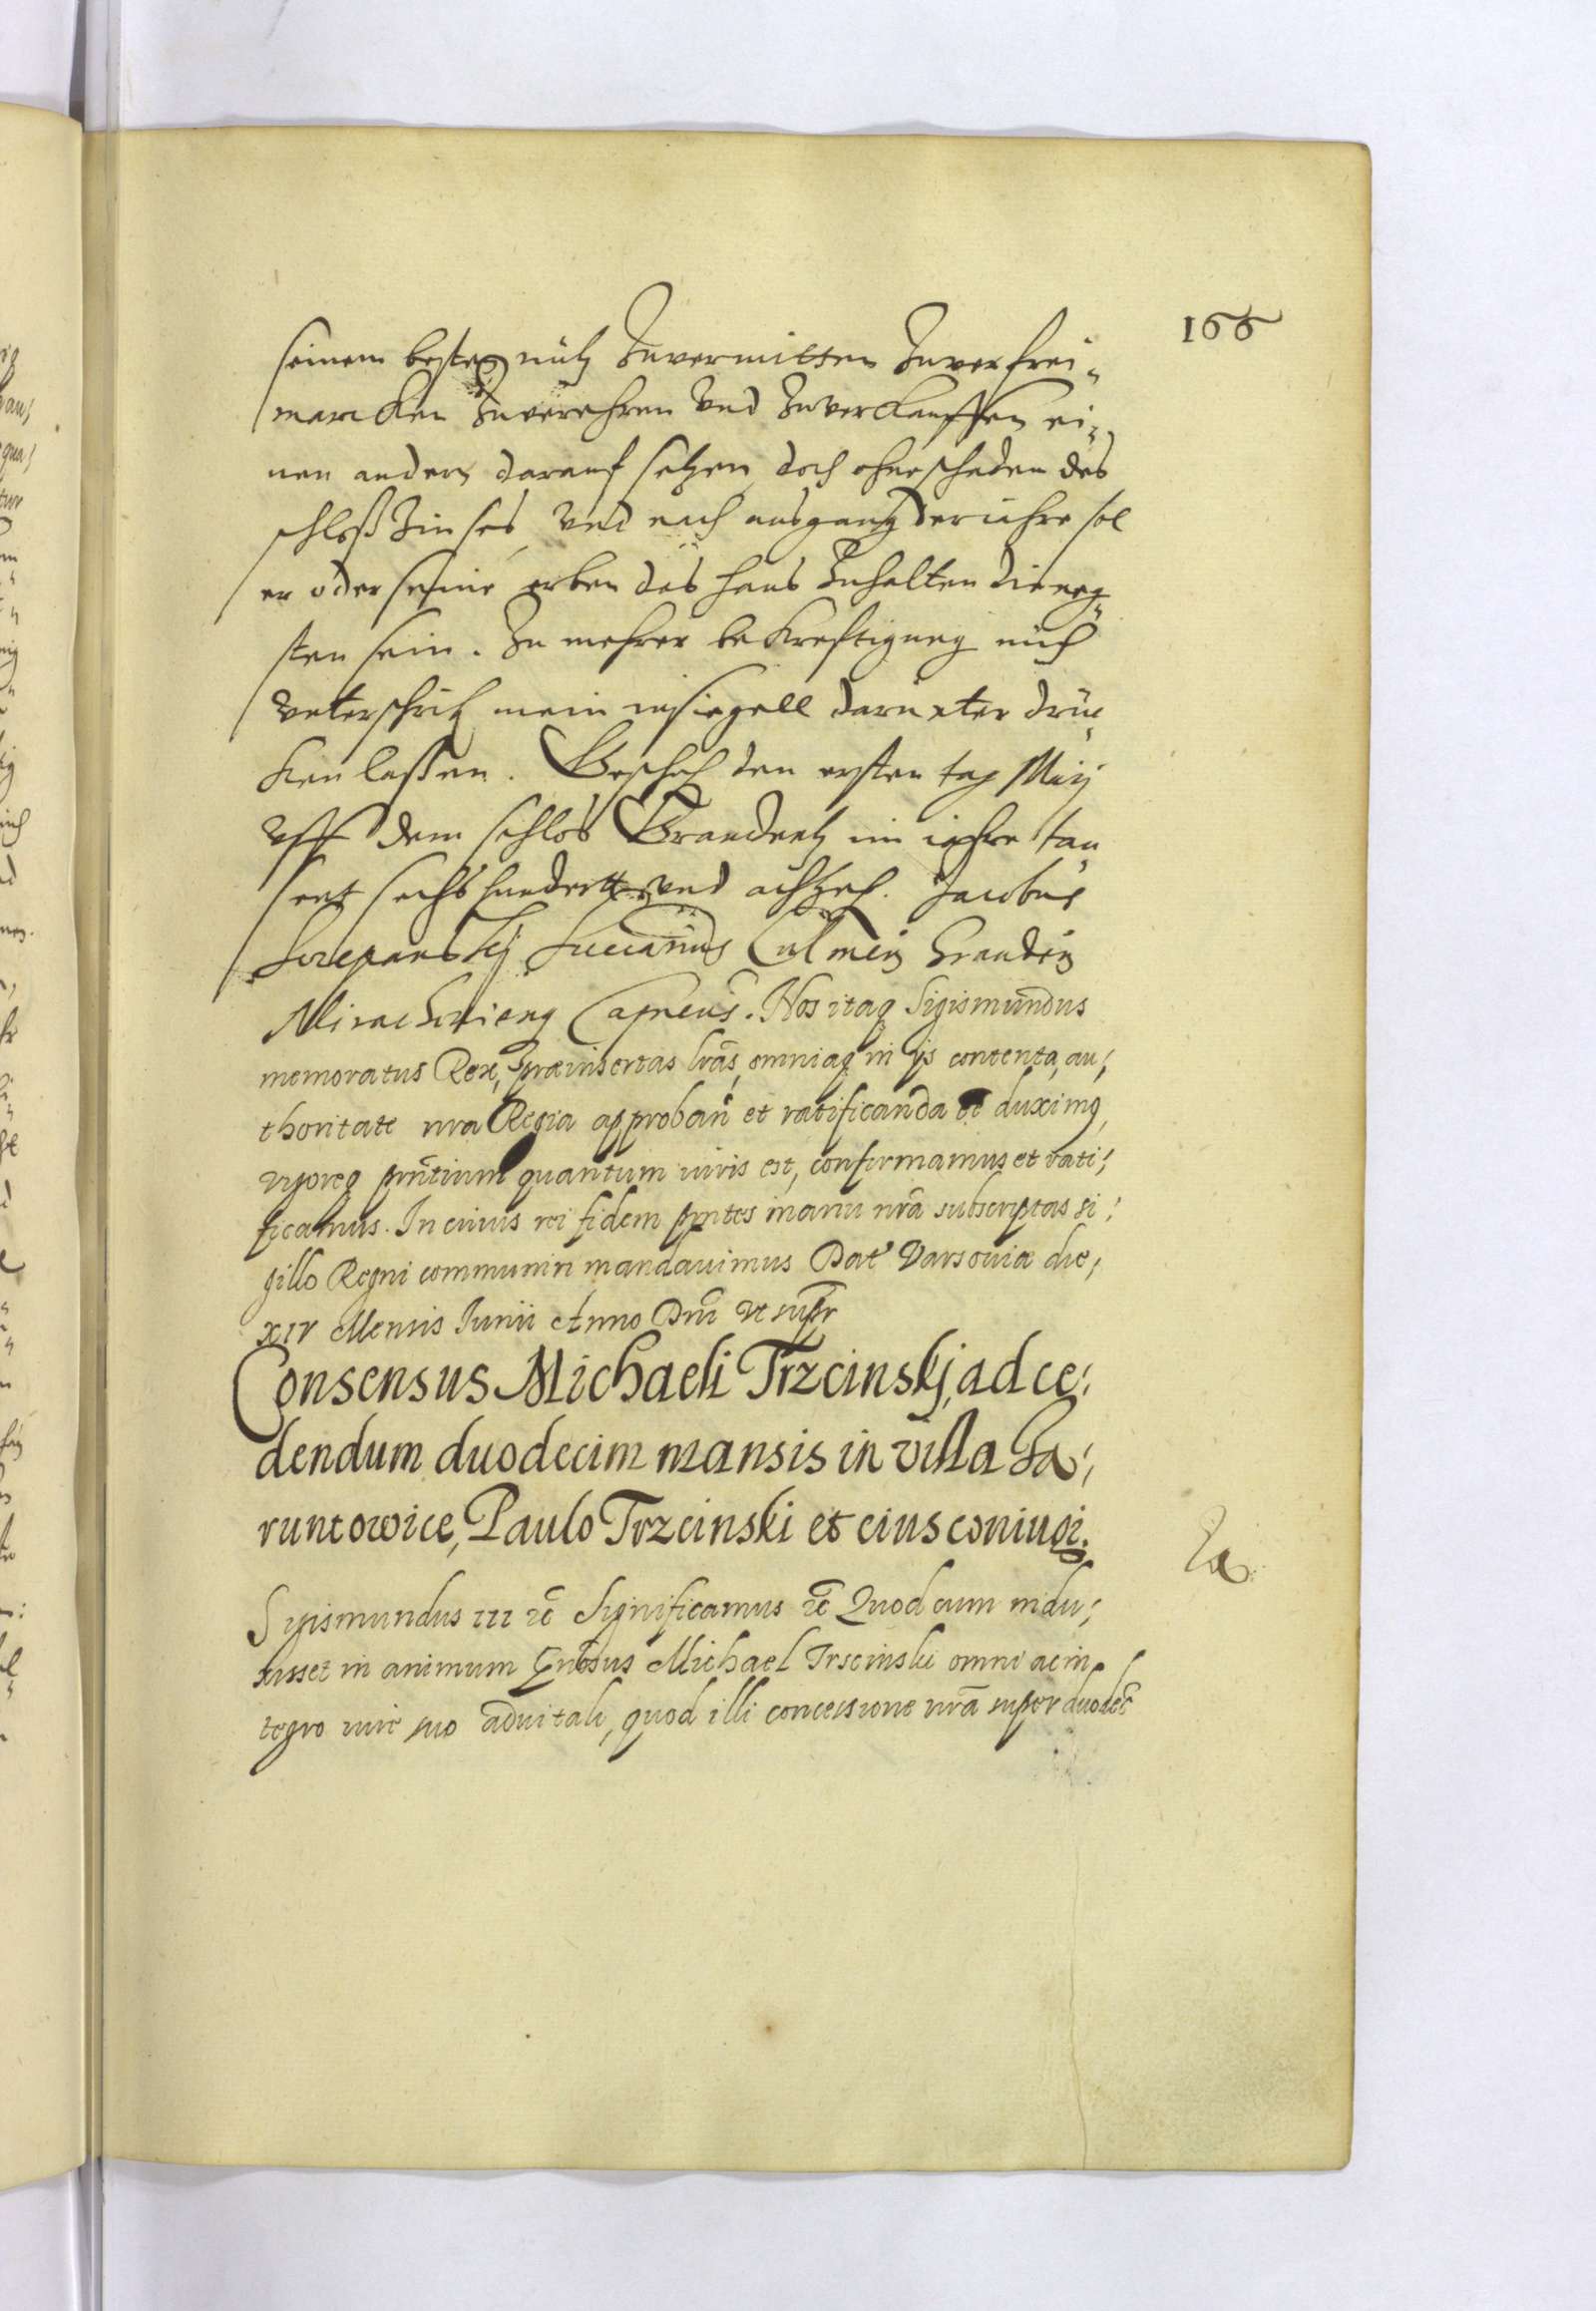 166
seinem besten nütz Zuvermitten Zuverfrei„
marcken Zuverehren vnd Zuverkauffen ei„
nen andern darauf setzen, doch ohne schaden des
schloß Zinses, vnd nach ausgang der iahre sol
er oder seine erben das haus Zuhalten die neg„
sten sein. Zu mehrer bekreftigung mich
vnterschrib mein insiegell darunter drü„
cken lassen. Geschah den ersten tag Maij
Vff dem schlos Graudentz im iahre tau„
sent sechshundertt vnd achtzeh. Jacobus
Szczepanskij Succamius Culmen Grauden
Capneus. Nos itaq Sigismundus
memoratus Rex, præinsertas lras, omniaq in ijs contenta, au;
thoritate nra Regia approban et ratificanda ee duximq,
vigoreq pntium quantum iuris est, confirmamus et rati;
ficamus. In cuius rei fidem pntes manu nra subscriptas si;
gillo Regni communiri mandauimus Dat Varsouiæ die;
XIV Mensis Junii Anno Dni vt supr
Consensus Michaeli Trzcinskj, ad ce;
dendum duodecim mansis in villa Ga;
runtowice, Paulo Trzcinski et eius coniugi.
Sigismundus III etc Significamus etc Quod cum indu;
xisset in animum Gnosus Michael Trscinski omni ac in
tegro iure suo aduitali, quod illi concessione nra super duodec